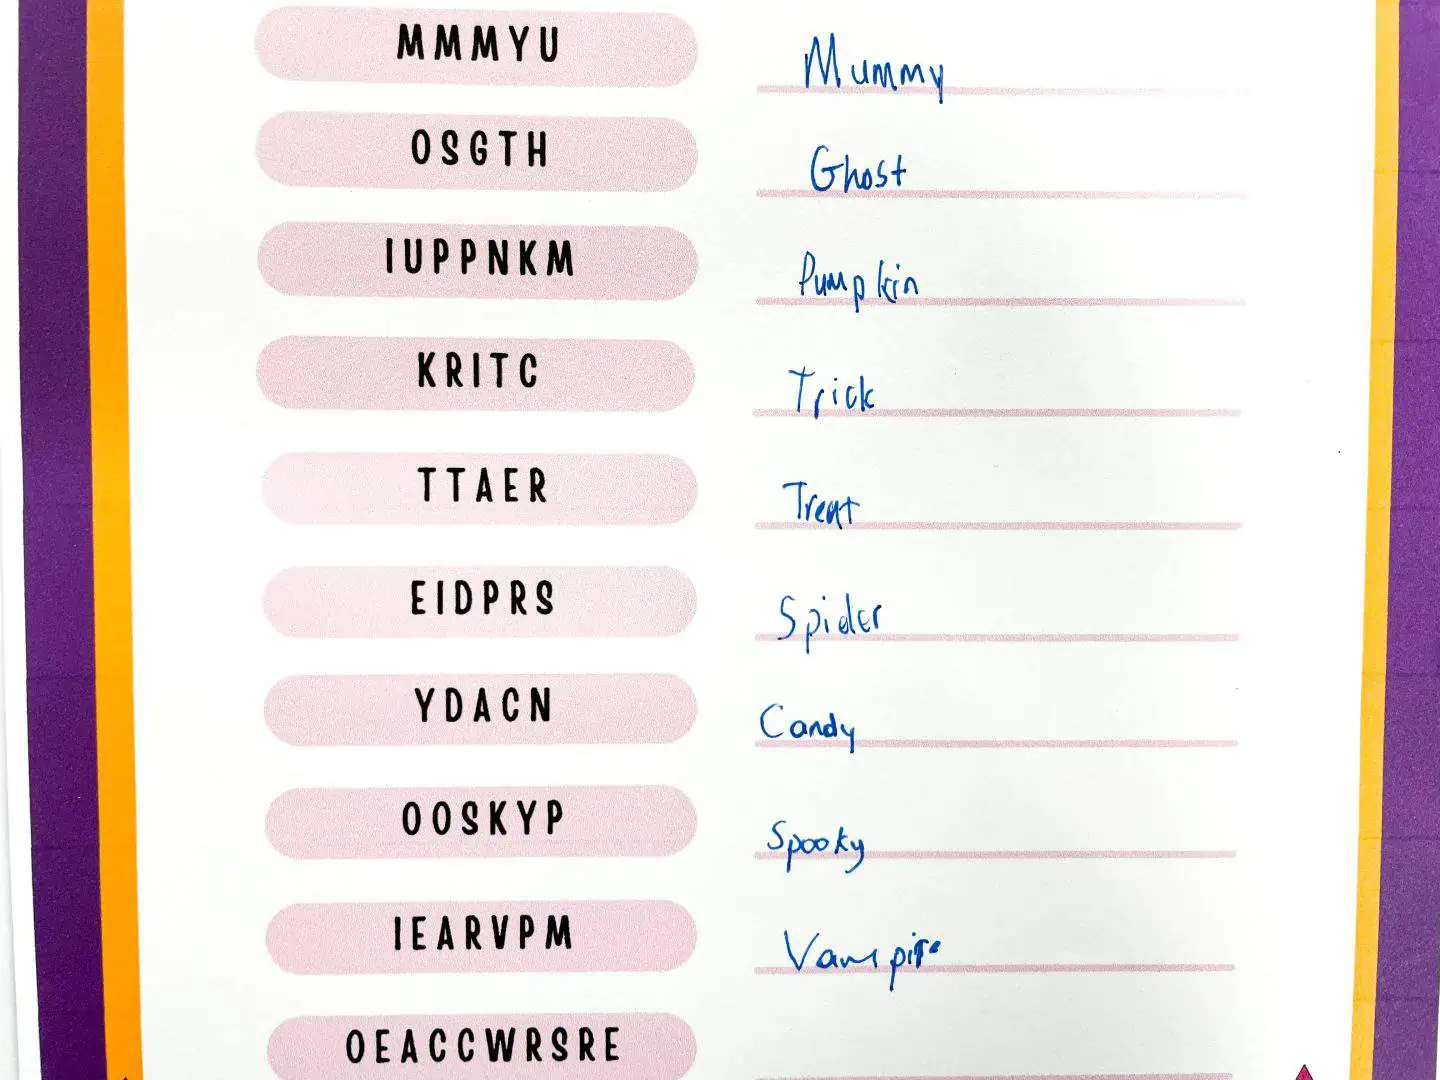 MMMYU Mummy
OSGTH Ghost
IUPPNKM Pumpkin
KRITC Trick
TTAER Treat
EIDPRS Spider
YDACN Candy
OOSKYP Spooky
IEARVPM Vampire
OEACCWRSRE